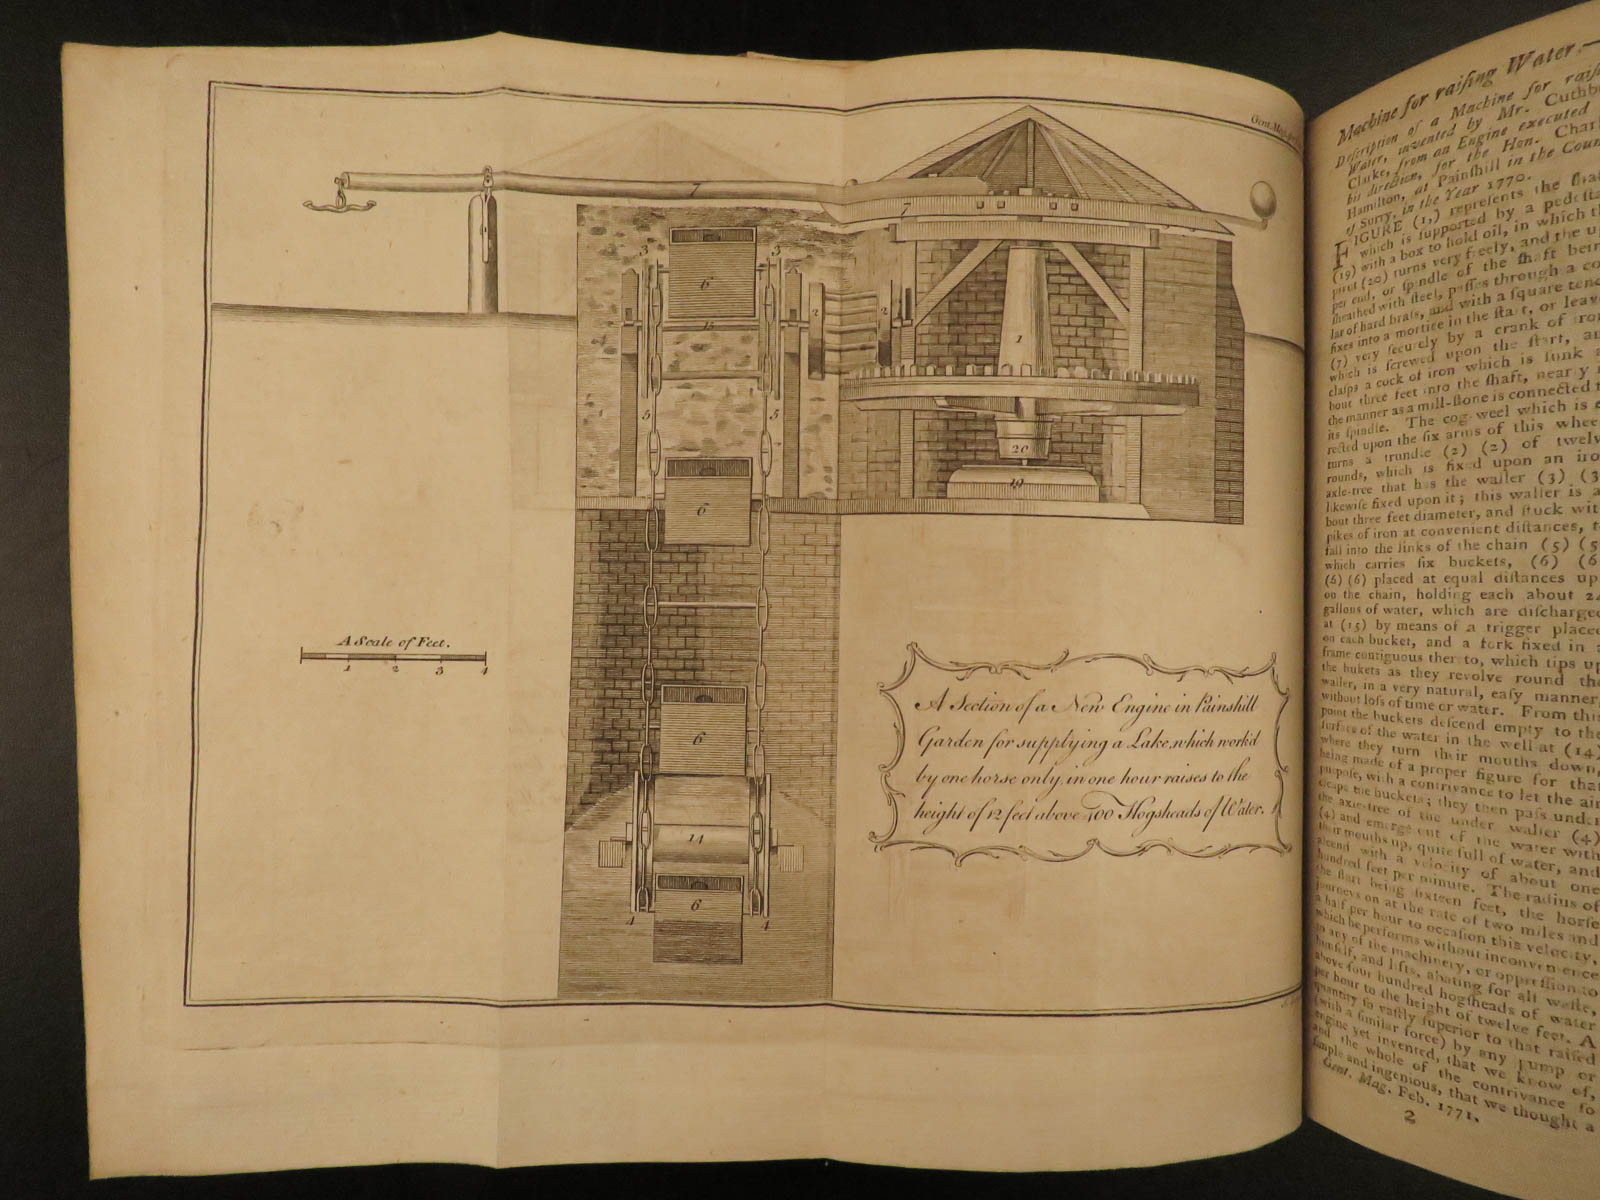 Gent. Mag.
7
7
3
3
6
15
2
2
1
5
5
6
20
19
6
6
14
6
4
4
A Scale of Feet.
1 2 3 4
A Section of a New Engine in Painshill
Garden for supplying a Lake, which work'd
by one horse only, in one hour raises to the
height of 12 feet above 400 Hogsheads of Water.
Machine for raiſing Water.—
Deſcription of a Machine for
Water, invented by Mr.
Clarke, from an Engine executed
his direction, for the Hon.
Hamilton, at Painſhill in the
of Surry, in the Year 1770.
FIGURE (1,) repreſents the
which is ſupported by a
(19) with a box to hold oil, in which
pivot (20) turns very freely, and the
per end, or ſpindle of the ſhaft
ſheathed with ſteel, paſſes through a
lar of hard braſs, and with a ſquare
fixes into a mortice in the ſtart, or
(7) very ſecurely by a crank of
which is ſcrewed upon the ſtart,
claſps a cock of iron which is ſunk
bout three feet into the ſhaft, nearly
the manner as a mill-ſtone is connected
its ſpindle. The cog-weel which is
rected upon the ſix arms of this
turns a trundle (2) (2) of
rounds, which is fixed upon an
axle-tree that has the waller (3)
likewiſe fixed upon it; this waller is
bout three feet diameter, and ſtuck
pikes of iron at convenient diſtances,
fall into the links of the chain (5)
which carries ſix buckets, (6)
(6) (6) placed at equal diſtances
on the chain, holding each about
gallons of water, which are
at (15) by means of a trigger
on each bucket, and a fork fixed in
frame contiguous thereto, which tips
the bukets as they revolve round
waller, in a very natural, eaſy
without loſs of time or water. From
point the buckets deſcend empty to
ſurface of the water in the well at (14)
where they turn their mouths down,
being made of a proper figure for that
purpoſe, with a contrivance to let the air
eſcape the buckets; they then paſs under
the axle-tree of the under waller (4)
(4) and emerge out of the water with
their mouths up, quite full of water, and
aſcend with a velocity of about one
hundred feet per minute. The radius of
the ſtart being ſixteen feet, the horſe
journeys on at the rate of two miles and
a half per hour to occaſion this velocity,
which he performs without inconvenience
to any of the machinery, or oppreſſion to
himſelf, and lifts, abating for all waſte,
above four hundred hogſheads of water
per hour to the height of twelve feet. A
quantity ſo vaſtly ſuperior to that raiſed
(with a ſimilar force) by any pump or
engine yet invented, that we know of,
and the whole of the contrivance ſo
ſimple and ingenious, that we thought a
Gent. Mag. Feb. 1771.
2